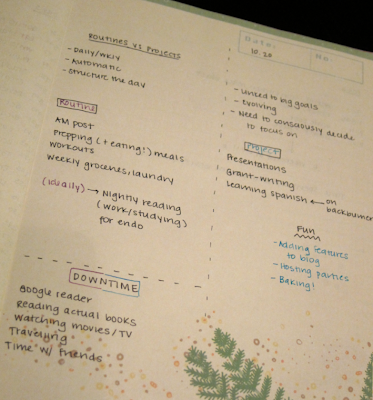 Routines vs Projects
- Daily/wkly
- Automatic
- Structure the day
Routine
AM post
Prepping (+ eating!) meals
Workouts
Weekly groceries, laundry
(usually) → Nightly reading
(work/studying)
for endo
Date:
10.20
No
- Linked to big goals
- Evolving
- Need to consciously decide
to focus on
Project
Presentations
Grant-writing
Learning Spanish ← on
backburner
Fun
- Adding features
to blog
- Hosting parties
- Baking!
DOWNTIME
Google reader
Reading actual books
Watching movies/TV
Traveling
Time w/ friends